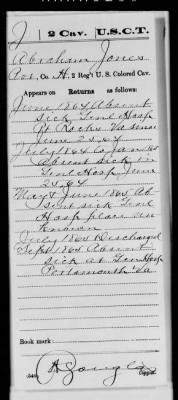 J | 2 Cav. | U.S.C.T.
Abraham Jones
Pvt., Co. H, 2 Reg't U. S. Colored Cav.
Appears on Returns as follows:
June 1864 Absent
sick Genl Hosp
Pt Rocks Va since
June 24, 64
July 1864
Absent sick in
Genl Hosp June
24, 64
May & June 1865 Ab-
sent sick Genl
Hosp place un
known
July 1864 Discharged
Sept 1864 Absent
sick at Gen Hosp
Portsmouth Va
Book mark:
(546)
Copyist.